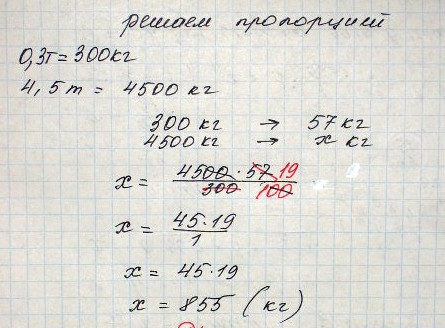 решаем пропорцией
0,3т = 300кг
4,5т = 4500 кг
300 кг → 57 кг
4500 кг → x кг
x = 4500 · 57 19
300 100
x = 45·19
1
x = 45·19
x = 855 (кг)